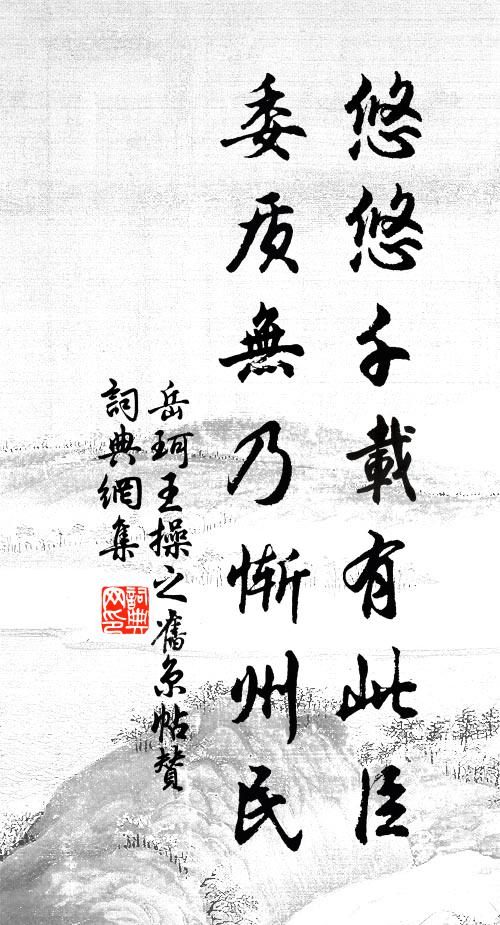 悠悠千載有此臣
委质無乃慚州民
岳珂王操之舊京帖贊
詞典網集
詞典网印